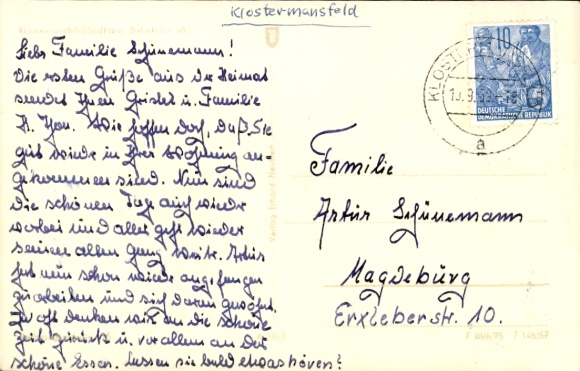 Klostermansfeld
Liebe Familie Schünemann!
Die ersten Grüße aus der Heimat
sendet Ihnen Gristel u. Familie
H. Wie hoffen doch, daß Sie
gut wieder in Ihrer Wohnung an-
gekommen sind. Nun sind
die schönen Tage auch wieder
vorbei und alles geht wieder
seinen alten Gang weiter.
hat nun schon wieder angefangen
zu arbeiten und sich daran gewöhnt.
So oft denken wir an die schöne
Zeit zurück u. vor allem an das
schöne Essen. Lassen sie bald etwas hören?
10
DEUTSCHE
DEMOKRATISCHE REPUBLIK
a
Familie
Artur Schünemann
Magdeburg
Erxleberstr. 10.